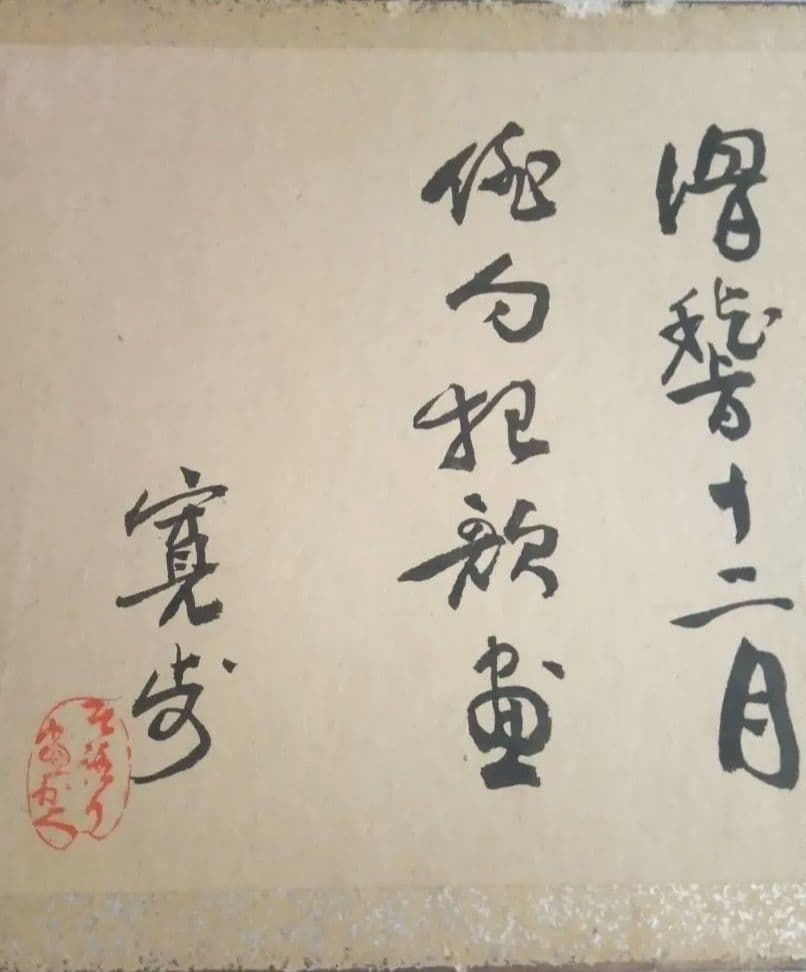 滑稽十二月
俳句狂歌画
寛